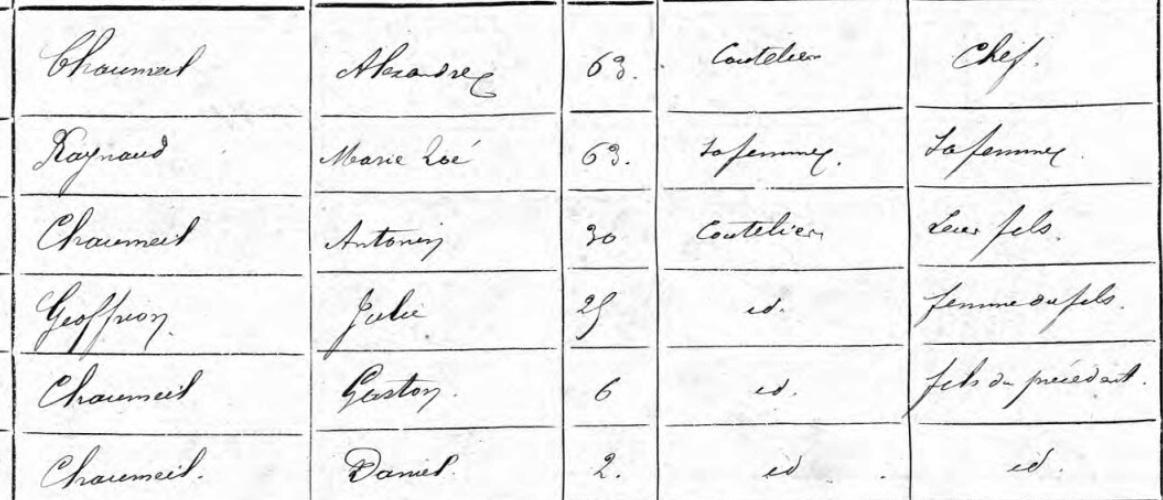 Chaumeil Alexandre 63. Coutelier Chef.
Raynaud Marie Zoé 63. Sa femme. Sa femme.
Chaumeil Antonin 30 Coutelier Leur fils.
Geoffrion. Julie 25 id. femme du fils.
Chaumeil Gaston. 6 id. fils du précédent.
Chaumeil. Daniel. 2. id id.